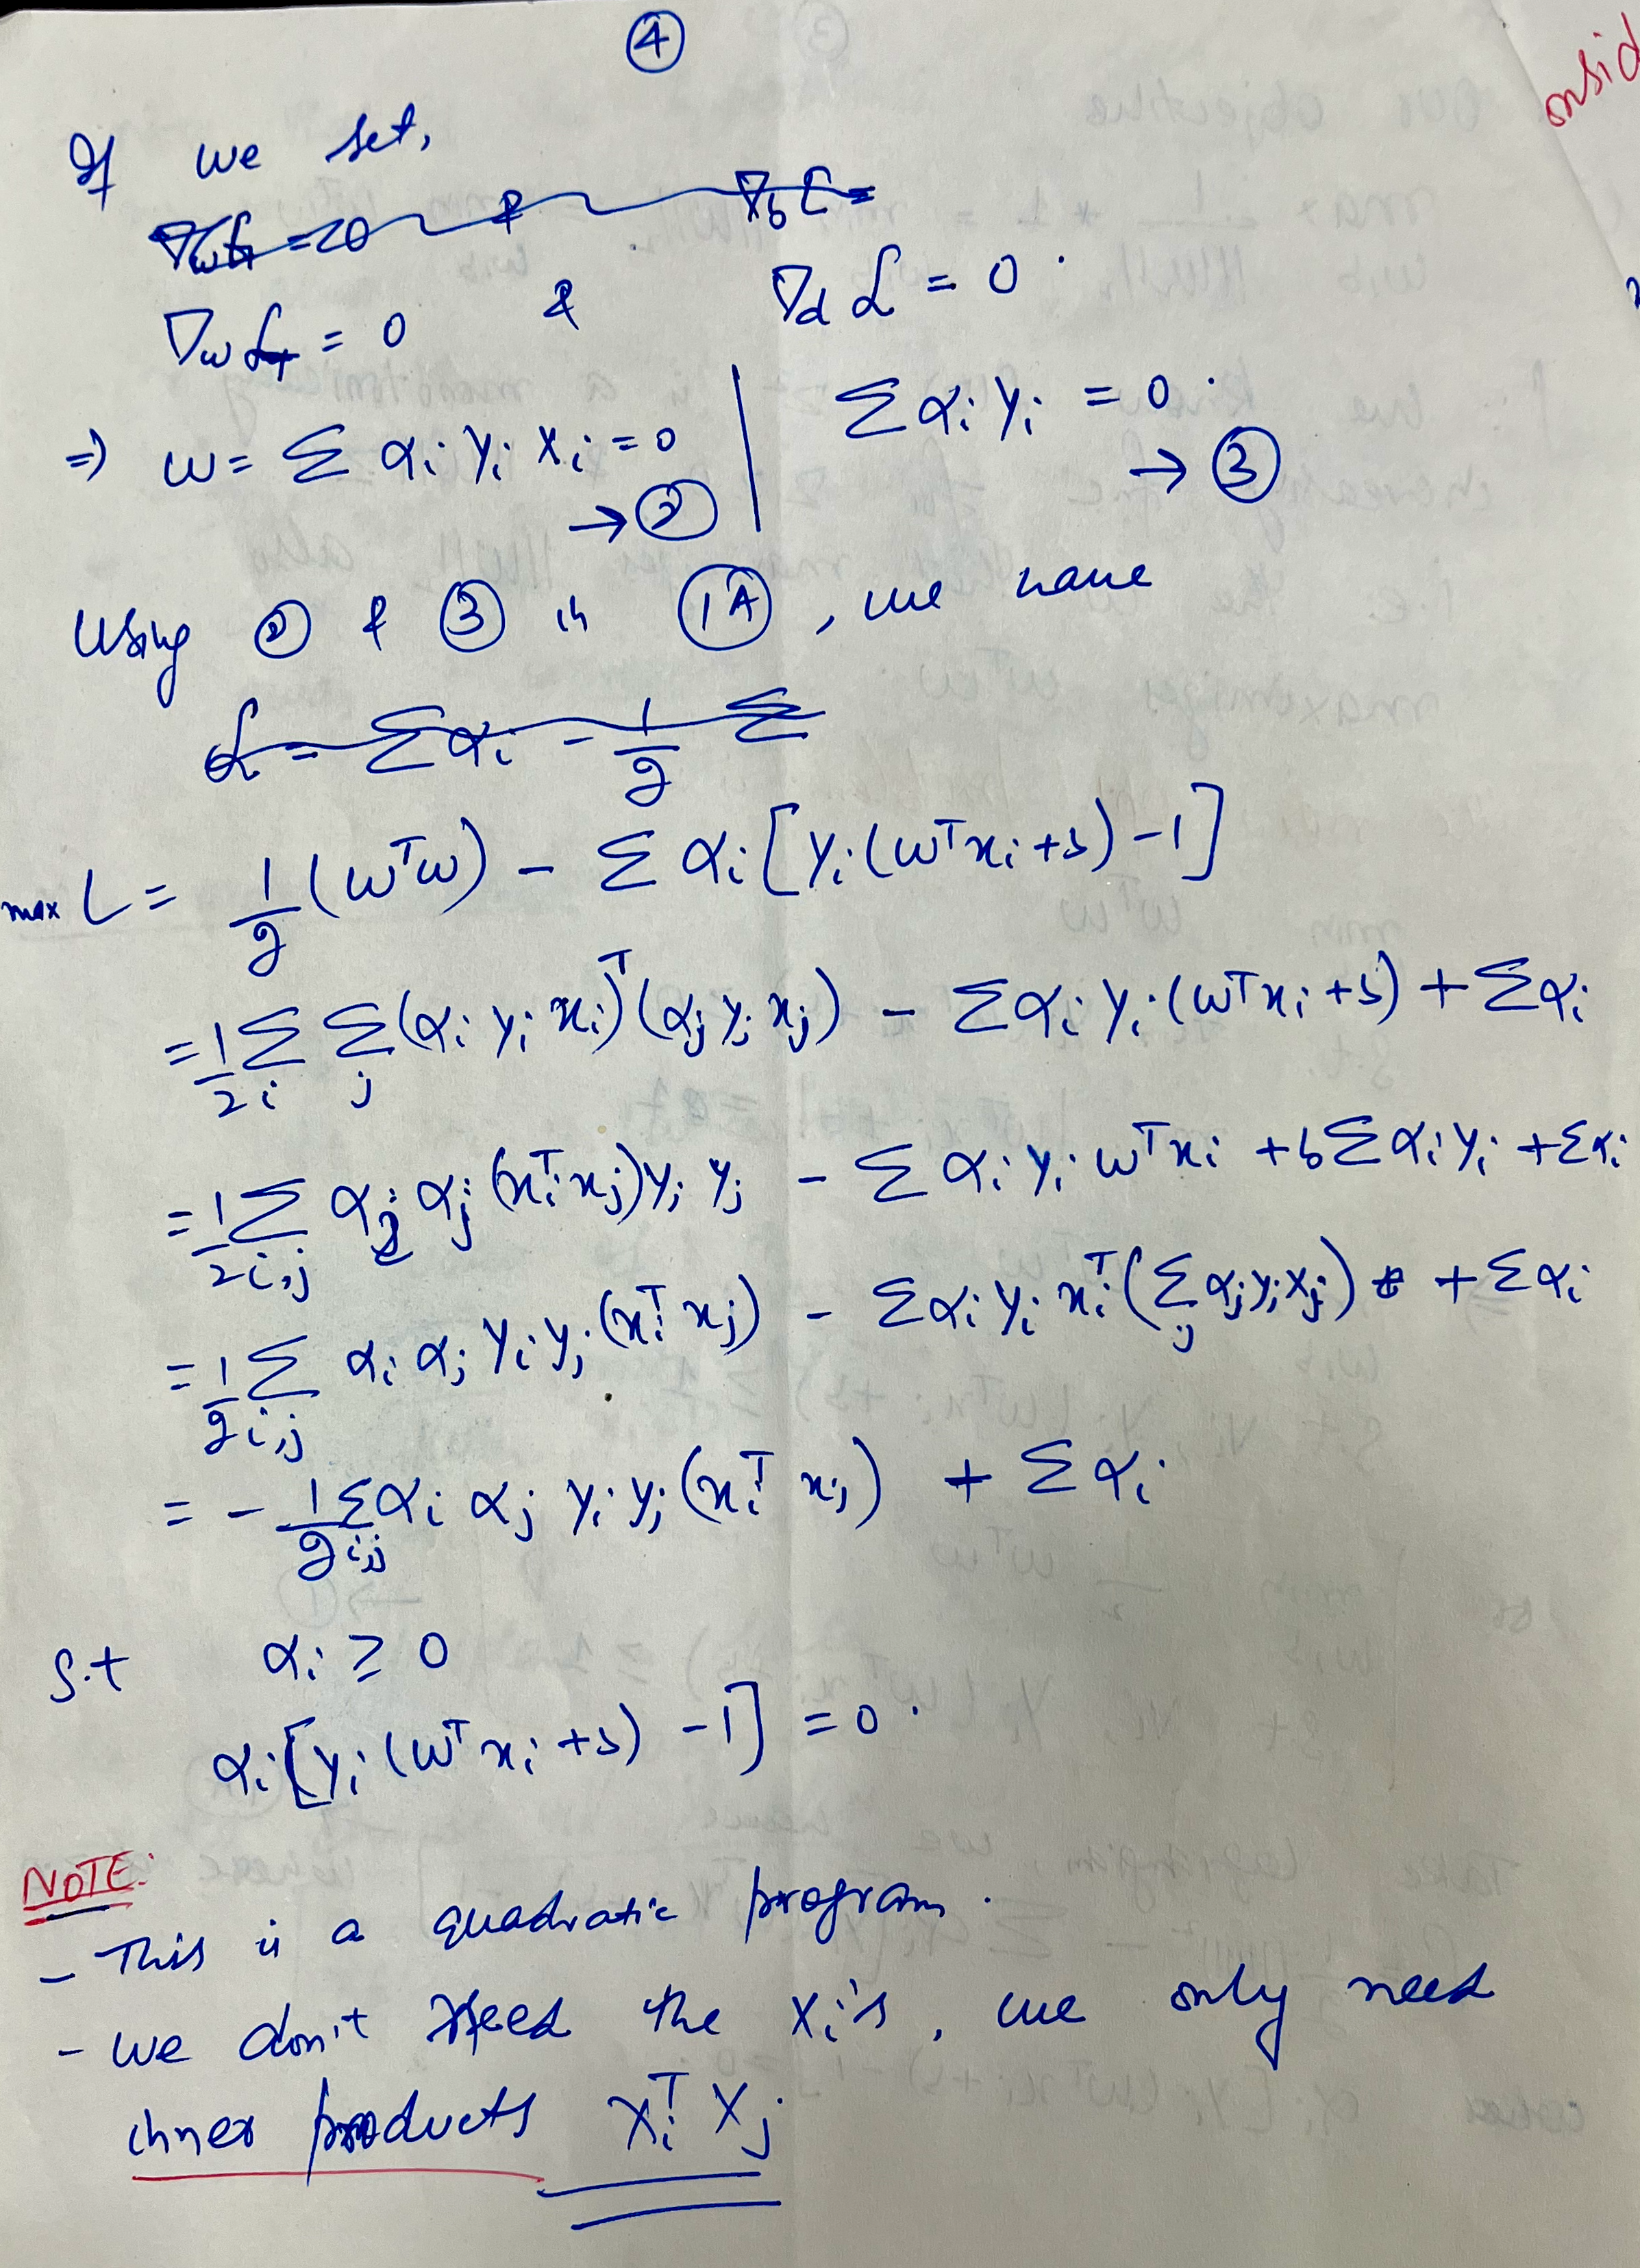 ④
onsid
If we set,
∇_w L = 0 & ∇_b L =
∇_w L = 0 & ∇_d L = 0.
⇒ w = Σ αi yi xi = 0 | Σ αi yi = 0.
→ ② → ③
Using ② & ③ in ①A, we have
L = Σαi - 1/2 Σ
max L = 1/2 (wᵀw) - Σ αi [yi(wᵀxi + b) - 1]
= 1/2 Σ_i Σ_j (αi yi xi)ᵀ (αj yj xj) - Σαi yi (wᵀxi + b) + Σαi
= 1/2 Σ_i,j αi αj (xiᵀ xj) yi yj - Σ αi yi wᵀxi + b Σ αi yi + Σαi
= 1/2 Σ_i,j αi αj yi yj (xiᵀ xj) - Σαi yi xiᵀ (Σ_j αj yj xj) + Σαi
= - 1/2 Σ_i,j αi αj yi yj (xiᵀ xj) + Σ αi
s.t αi ≥ 0
αi [yi (wᵀ xi + b) - 1] = 0.
NOTE:
- This is a quadratic program.
- We don't need the xi's, we only need
inner products xiᵀ xj